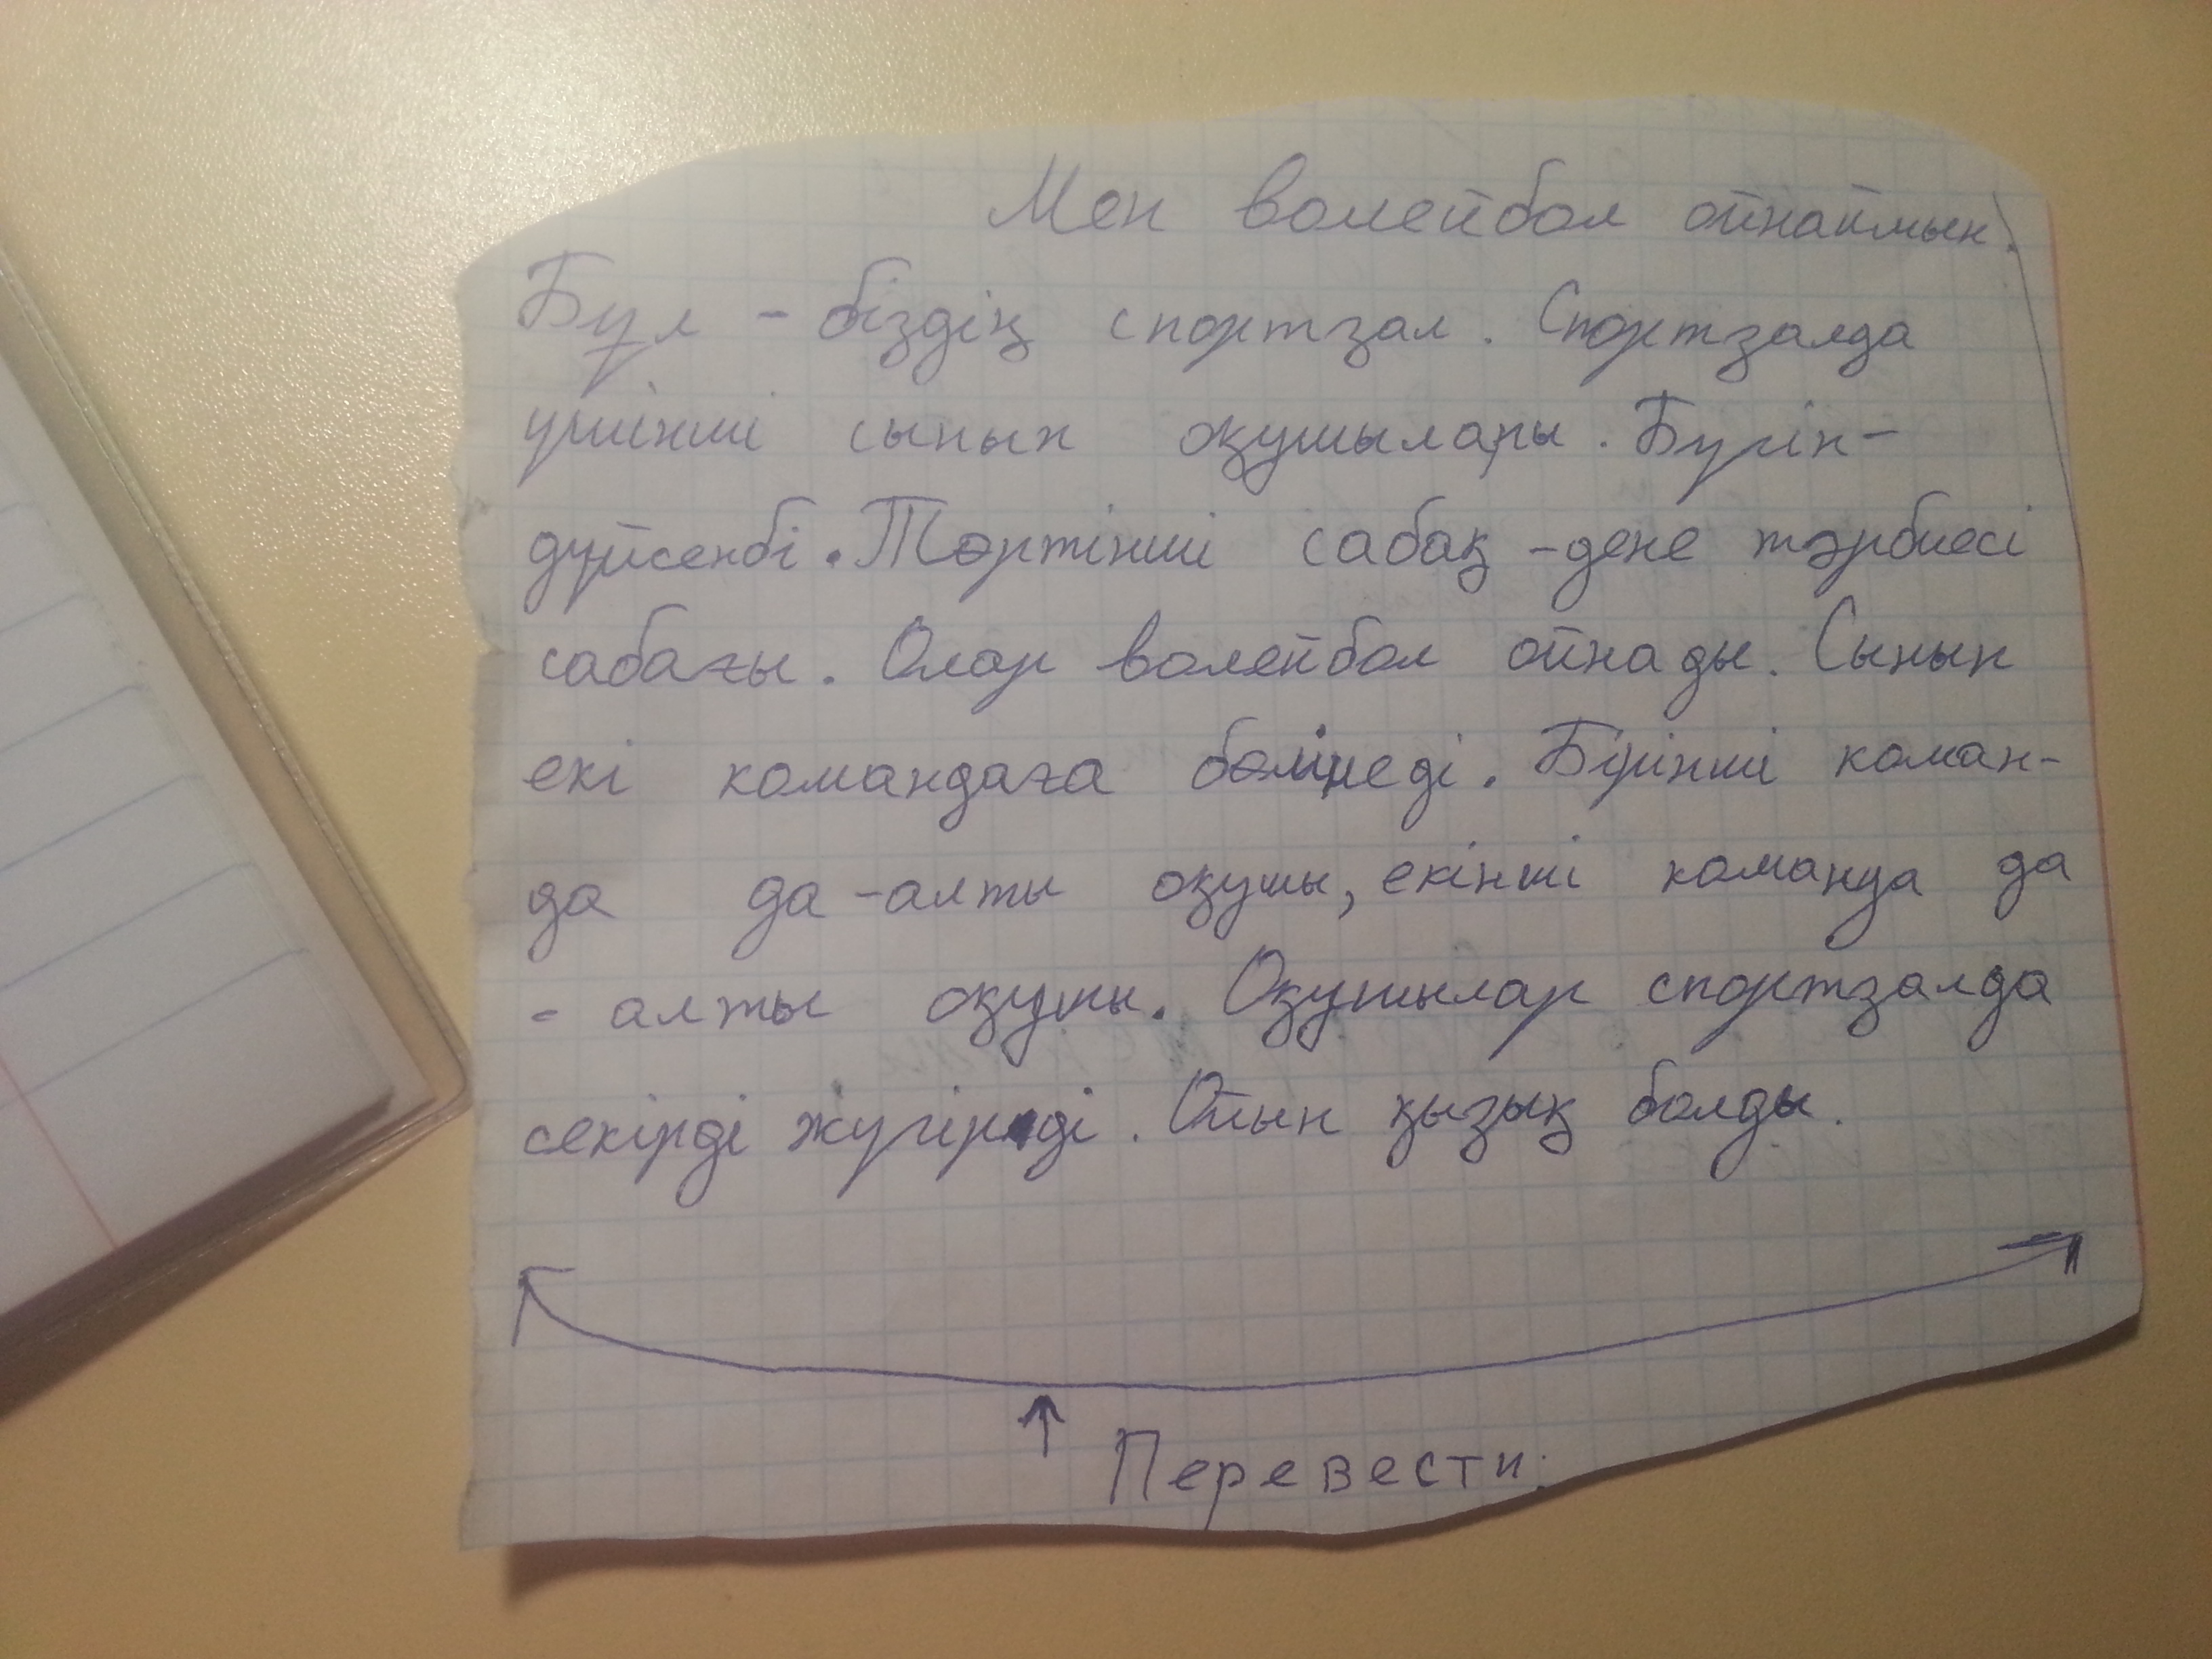 Мен волейбол ойнаймын.
Бұл - біздің спортзал. Спортзалда
үшінші сынып оқушылары. Бүгін-
дүйсенбі. Төртінші сабақ - дене тәрбиесі
сабағы. Олар волейбол ойнады. Сынып
екі командаға бөлінеді. Бірінші коман-
да да - алты оқушы, екінші команда да
- алты оқушы. Оқушылар спортзалда
секірді жүгірді. Ойын қызық болды.
Перевести.